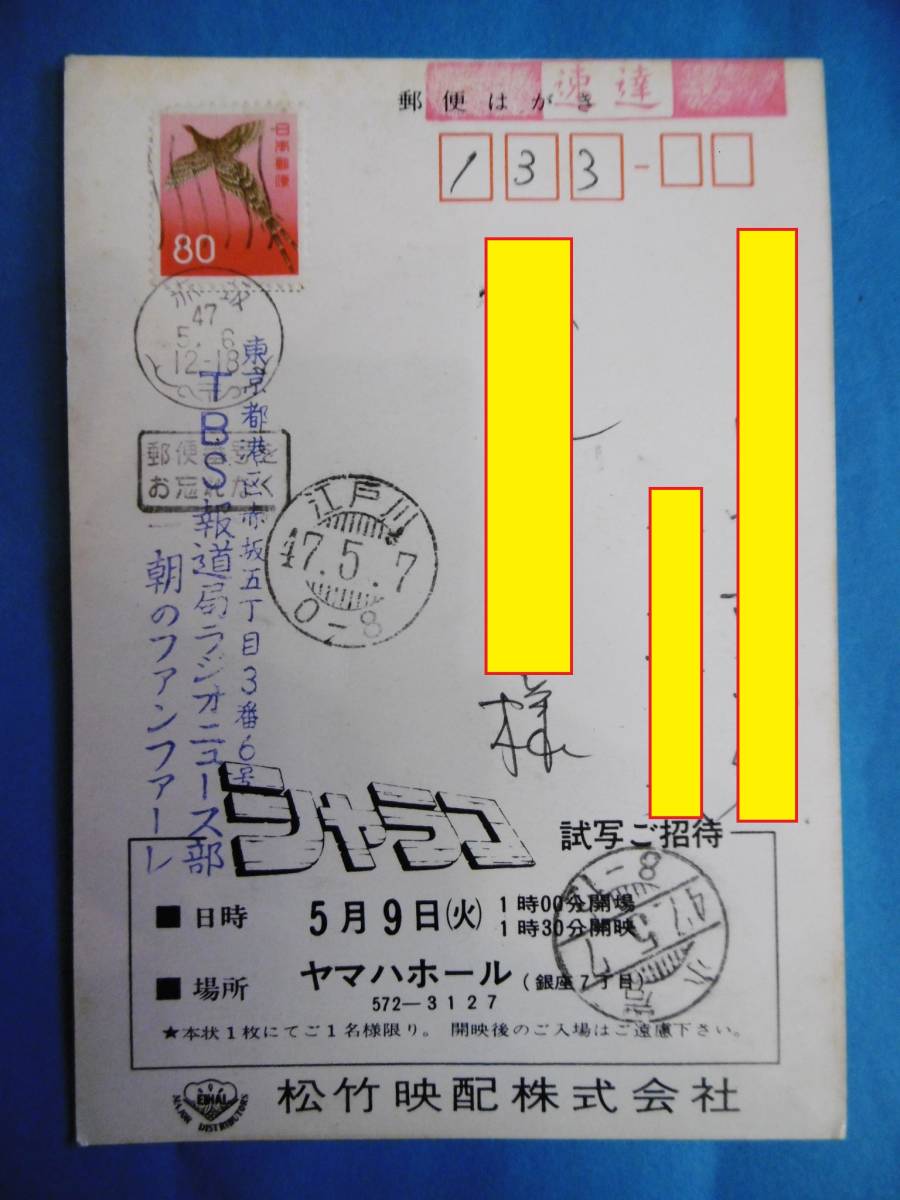 速達
郵便はがき
133-
日本郵便
80
赤坂
47
5.6
12-18
郵便番号を
お忘れなく
江戸川
47.5.7
0-8
様
東京都港区赤坂五丁目3番6号
TBS報道局ラジオニュース部
朝のファンファーレ
シャラコ
試写ご招待
■日時 5月9日(火) 1時00分開場
1時30分開映
■場所 ヤマハホール(銀座7丁目)
572-3127
★本状1枚にてご1名様限り。 開映後のご入場はご遠慮下さい。
小岩
47.5.7
EIHAI
DISTRIBUTORS
松竹映配株式会社